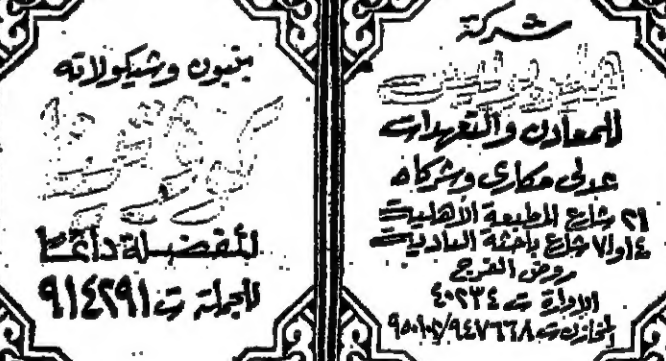 شركة
للمعادن والتعهدات
عدلى مكارى وشركاه
٢١ شارع المطبعة الأهلية
١٤ و ٧١ شارع باحثة البادية
روض الفرج
الإدارة ت ٤٠٢٣٤
المخازن ت ٩٤٧٦٦٨
بنبون وشيكولاته
المفضلة دائما
للجملة ت ٩١٤٢٩١